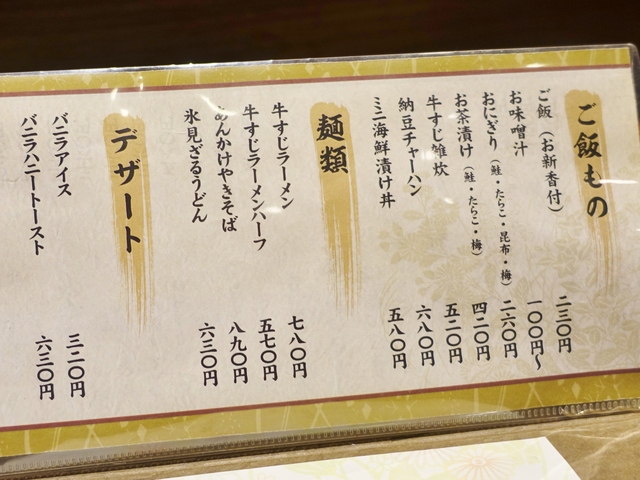 ご飯もの
ご飯（お新香付） 二三〇円
お味噌汁 一〇〇円〜
おにぎり（鮭・たらこ・昆布・梅） 二六〇円
お茶漬け（鮭・たらこ・梅） 四二〇円
牛すじ雑炊 五二〇円
納豆チャーハン 六八〇円
ミニ海鮮漬け丼 五八〇円
麺類
牛すじラーメン 七八〇円
牛すじラーメンハーフ 五七〇円
あんかけやきそば 八九〇円
氷見ざるうどん 六三〇円
デザート
バニラアイス 三二〇円
バニラハニートースト 六三〇円